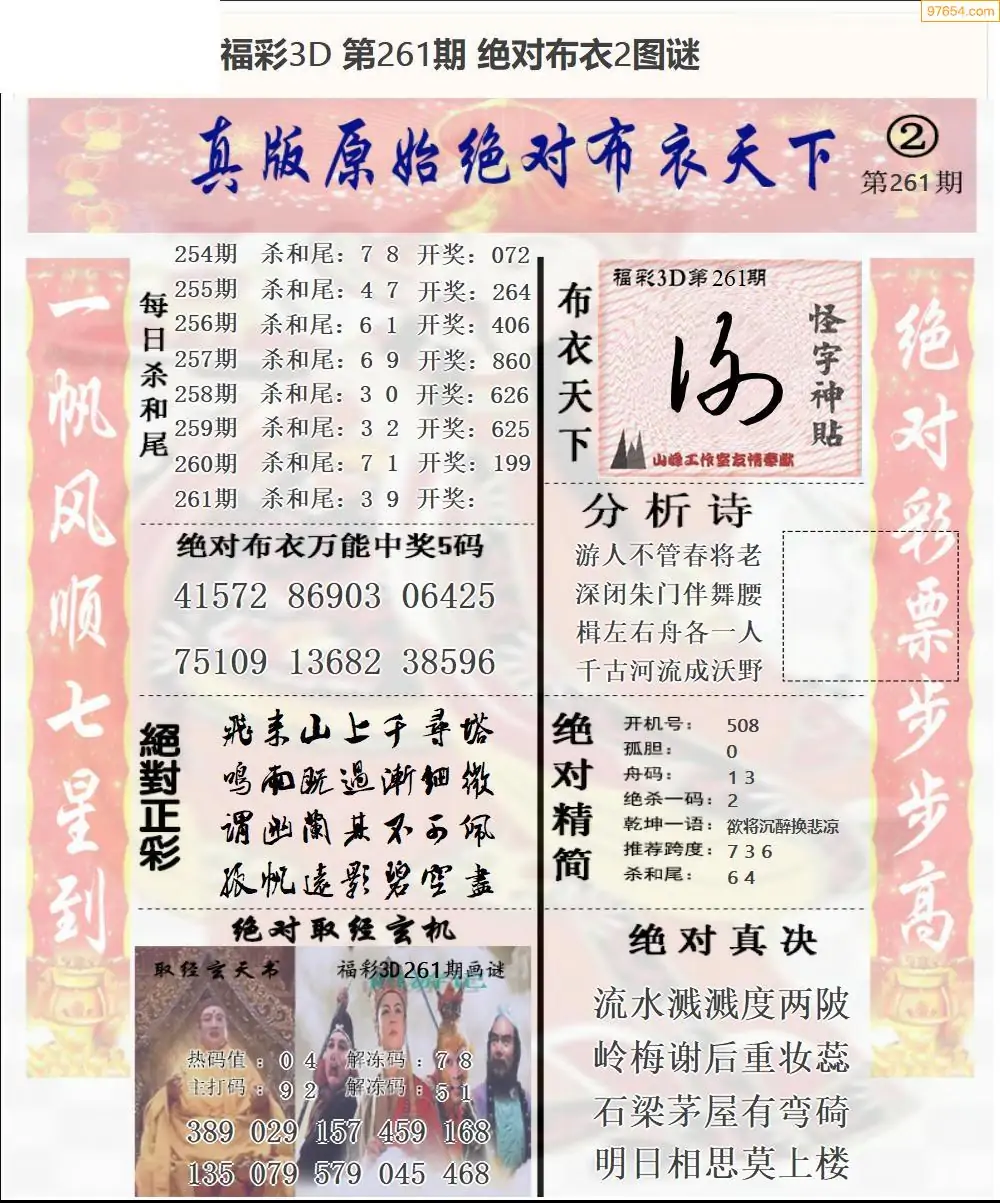 97654.com
福彩3D 第261期 绝对布衣2图谜
真版原始绝对布衣天下
②
第261期
一帆风顺七星到
每日杀和尾
254期 杀和尾：7 8 开奖：072
255期 杀和尾：4 7 开奖：264
256期 杀和尾：6 1 开奖：406
257期 杀和尾：6 9 开奖：860
258期 杀和尾：3 0 开奖：626
259期 杀和尾：3 2 开奖：625
260期 杀和尾：7 1 开奖：199
261期 杀和尾：3 9 开奖：
绝对布衣万能中奖5码
41572 86903 06425
75109 13682 38596
絕對正彩
飛来山上千尋塔
鳴雨既過漸細微
謂幽蘭其不可佩
孤帆遠影碧空盡
绝对取经玄机
取经玄天书
福彩3D261期画谜
热码值：0 4 解冻码：7 8
主打码：9 2 解冻码：5 1
389 029 157 459 168
135 079 579 045 468
布衣天下
福彩3D第261期
怪字神貼
山峰工作室友情奉献
分析诗
游人不管春将老
深闭朱门伴舞腰
楫左右舟各一人
千古河流成沃野
绝对精简
开机号： 508
孤胆： 0
舟码： 1 3
绝杀一码：2
乾坤一语：欲将沉醉换悲凉
推荐跨度：7 3 6
杀和尾： 6 4
绝对真决
流水溅溅度两陂
岭梅谢后重妆蕊
石梁茅屋有弯碕
明日相思莫上楼
绝对彩票步步高